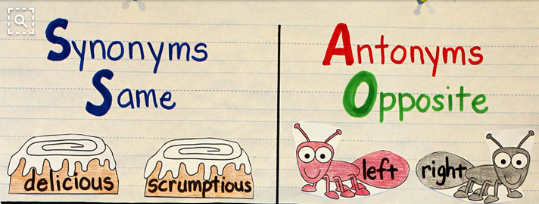 Synonyms
Same
delicious
scrumptious
Antonyms
Opposite
left
right